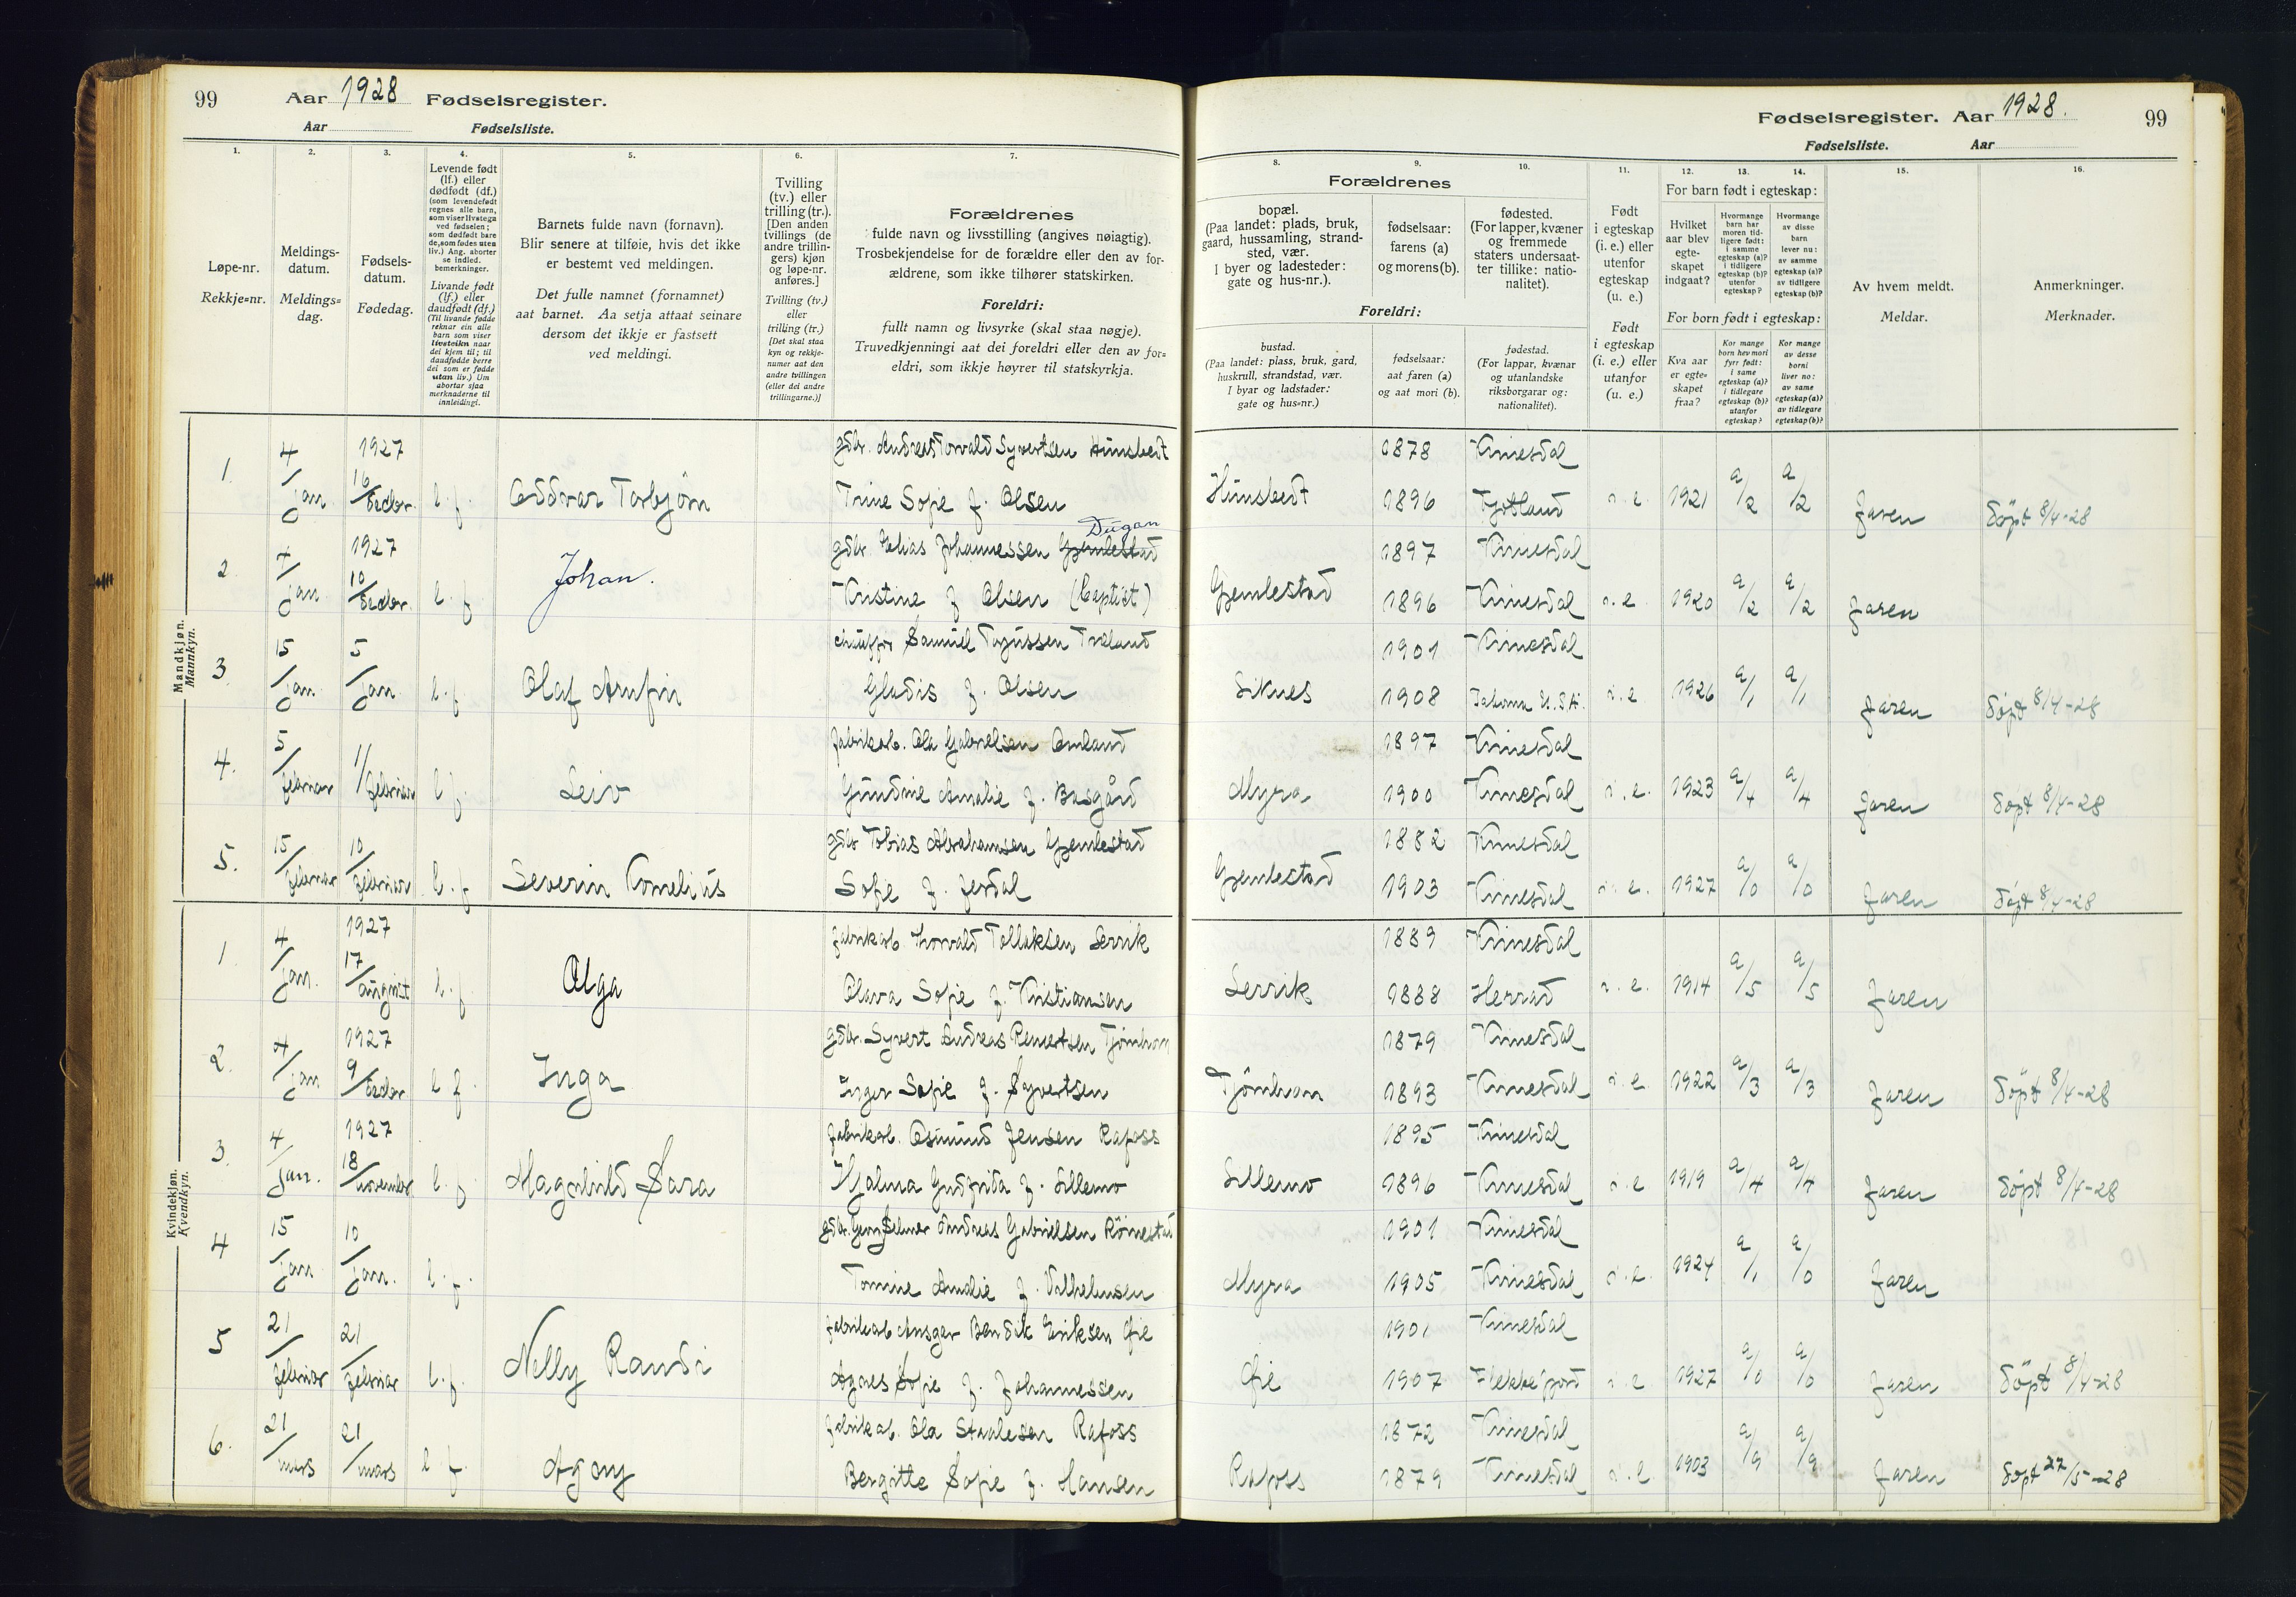 99 Aar 1928 Fødselsregister.
Aar Fødselsliste.
Fødselsregister. Aar 1928. 99
Fødselsliste. Aar
1. 2. 3. 4. 5. 6. 7.
Løpe-nr.
Rekkje=nr.
Meldings-
datum.
Meldings=
dag.
Fødsels-
datum.
Fødedag.
Levende født
(lf.) eller
dødfødt (df.)
(som levendefødt
regnes alle barn,
som viser livstegn
ved fødselen;
som dødfødt bare
de, som fødes uten
liv.) Ang. aborter
se indled.
bemerkninger.
Livande født
(lf.) eller
daudfødt (df.)
(Til livande fødde
reknar ein alle
barn som viser
livsteikn naar
dei kjem til; til
daudfødde berre
dei som er fødde
utan liv.) Um
abortar sjaa
merknaderne til
innleidingi.
Barnets fulde navn (fornavn).
Blir senere at tilføie, hvis det ikke
er bestemt ved meldingen.
Det fulle namnet (fornamnet)
aat barnet. Aa setja attaat seinare
dersom det ikkje er fastsett
ved meldingi.
Tvilling
(tv.) eller
trilling (tr.).
[Den anden
tvillings (de
andre trillin-
gers) kjøn
og løpe-nr.
anføres.]
Tvilling (tv.)
eller
trilling (tr.)
[Det skal staa
kyn og rekkje-
numer aat den
andre tvillingen
(eller dei andre
trillingarne.)]
Forældrenes
fulde navn og livsstilling (angives nøiagtig).
Trosbekjendelse for de forældre eller den av for-
ældrene, som ikke tilhører statskirken.
Foreldri:
fullt namn og livsyrke (skal staa nøgje).
Truvedkjenningi aat dei foreldri eller den av for=
eldri, som ikkje høyrer til statskyrkja.
8. 9. 10. 11. 12. 13. 14. 15. 16.
Forældrenes
bopæl.
(Paa landet: plads, bruk,
gaard, hussamling, strand-
sted, vær.
I byer og ladesteder:
gate og hus-nr.).
fødselsaar:
farens (a)
og morens (b).
fødested.
(For lapper, kvæner
og fremmede
staters undersaat-
ter tillike: natio-
nalitet).
Foreldri:
bustad.
(Paa landet: plass, bruk, gard,
huskrull, strandstad, vær.
I byar og ladstader:
gate og hus=nr.)
fødselsaar:
aat faren (a)
og aat mori (b).
fødestad.
(For lappar, kvænar
og utanlandske
riksborgarar og:
nationalitet).
Født
i egteskap
(i. e.) eller
utenfor
egteskap
(u. e.)
Født
i egteskap
(i. e.) eller
utanfor
(u. e.)
For barn født i egteskap:
Hvilket
aar blev
egte-
skapet
indgaat?
Hvormange
barn har
moren tid-
ligere født:
i samme
egteskap (a)?
i tidligere
egteskap (b)?
utenfor
egteskap?
Hvormange
av disse
barn
lever nu:
av samme
egteskap (a)?
av tidligere
egteskap (b)?
For born født i egteskap:
Kva aar
er egte=
skapet
fraa?
Kor mange
born hev mori
fyrr født:
i same
egteskap (a)?
i tidlegare
egteskap (b)?
utanfor
egteskap?
Kor mange
av desse
borni
liver no:
av same
egteskap (a)?
av tidlegare
egteskap (b)?
Av hvem meldt.
Meldar.
Anmerkninger.
Merknader.
Mandkjøn.
Mannkyn.
1. 4/jan 1927 16/decbr. l.f. Oddvar Torbjörn gdbr. Andreas Torvald Syvertsen Hunsbedt 1878 Kvinesdal
Trine Sofie f. Olsen Hunsbedt 1896 i.e. 1921 a/2 a/2 Jaren döpt 8/4-28
2 4/jan 1927 10/decbr. l.f. Johan. gdbr. Elias Johannessen Gjemlestad Dugan 1897 Kvinesdal
Kristine f. Olsen (Baptist) Gjemlestad 1896 Kvinesdal i.e 1920 a/2 a/2 Jaren
3 15/jan. 5/jan l.f. Olaf Arnfin Samuel Træland 1901 Kvinesdal
Gladis f. Olsen 1908 U.S.A. i.e 1926 a/1 a/1 Jaren döpt 8/4-28
4. 5/februar 1/februar l.f. Leiv fabrikarb. Ola Gabrielsen Omland 1897 Kvinesdal
Gundine Amalie f. Myra 1900 Kvinesdal i.e. 1923 a/4 a/4 Jaren döpt 8/4-28
5. 15/februar 10/februar l.f Severin Kornelius gdbr Tobias Abrahamsen Gjemlestad 1882 Kvinesdal
Sofie f. Jerdal Gjemlestad 1903 Kvinesdal i.e. 1927 a/0 a/0 Jaren döpt 8/4-28
Kvindekjøn.
Kvendkyn.
1 4/jan. 1927 17/august l.f Olga fabrikarb. Torvald Tollaksen Lervik 1889 Kvinesdal
Olava Sofie f. Kristiansen Lervik 1888 Herrad i.e. 1914 a/5 a/5 Jaren
2. 4/jan 1927 9/decbr l.f. Inga gdbr. Syvert Andreas Reinertsen Tjömhom 1879 Kvinesdal
Inger Sofie f. Syvertsen Tjömhom 1893 Kvinesdal i.e. 1922 a/3 a/3 Jaren döpt 8/4-28
3. 4/jan. 1927 18/november l.f Magnhild Sara fabrikarb. Osmund Jensen Rafoss 1895 Kvinesdal
Hjalma Gudfrida f. Sillemo Sillemo 1896 Kvinesdal i.e 1919 a/4 a/4 Jaren döpt 8/4-28
4 15/jan 10/jan. l.f. gdbr. Selmer Andreas Gabrielsen Röinestad 1901 Kvinesdal
Tomine Amalie f. Vilhelmsen Myra 1905 Kvinesdal i.e. 1924 a/1 a/0 Jaren
5 21/februar 21/februar l.f. Nelly Randi fabrikarb Ansgar Bendik Eriksen Öie 1901 Kvinesdal
Agnes Sofie f. Johannessen Öie 1907 Flekkefjord i.e 1927 a/0 a/0 Jaren döpt 8/4-28
6. 21/mars 21/mars l.f. Agny fabrikarb. Ola Staalesen Rafoss 1872 Kvinesdal
Bergitte Sofie f. Hansen Rafoss 1879 Kvinesdal i.e 1903 a/9 a/9 Jaren döpt 27/5-28